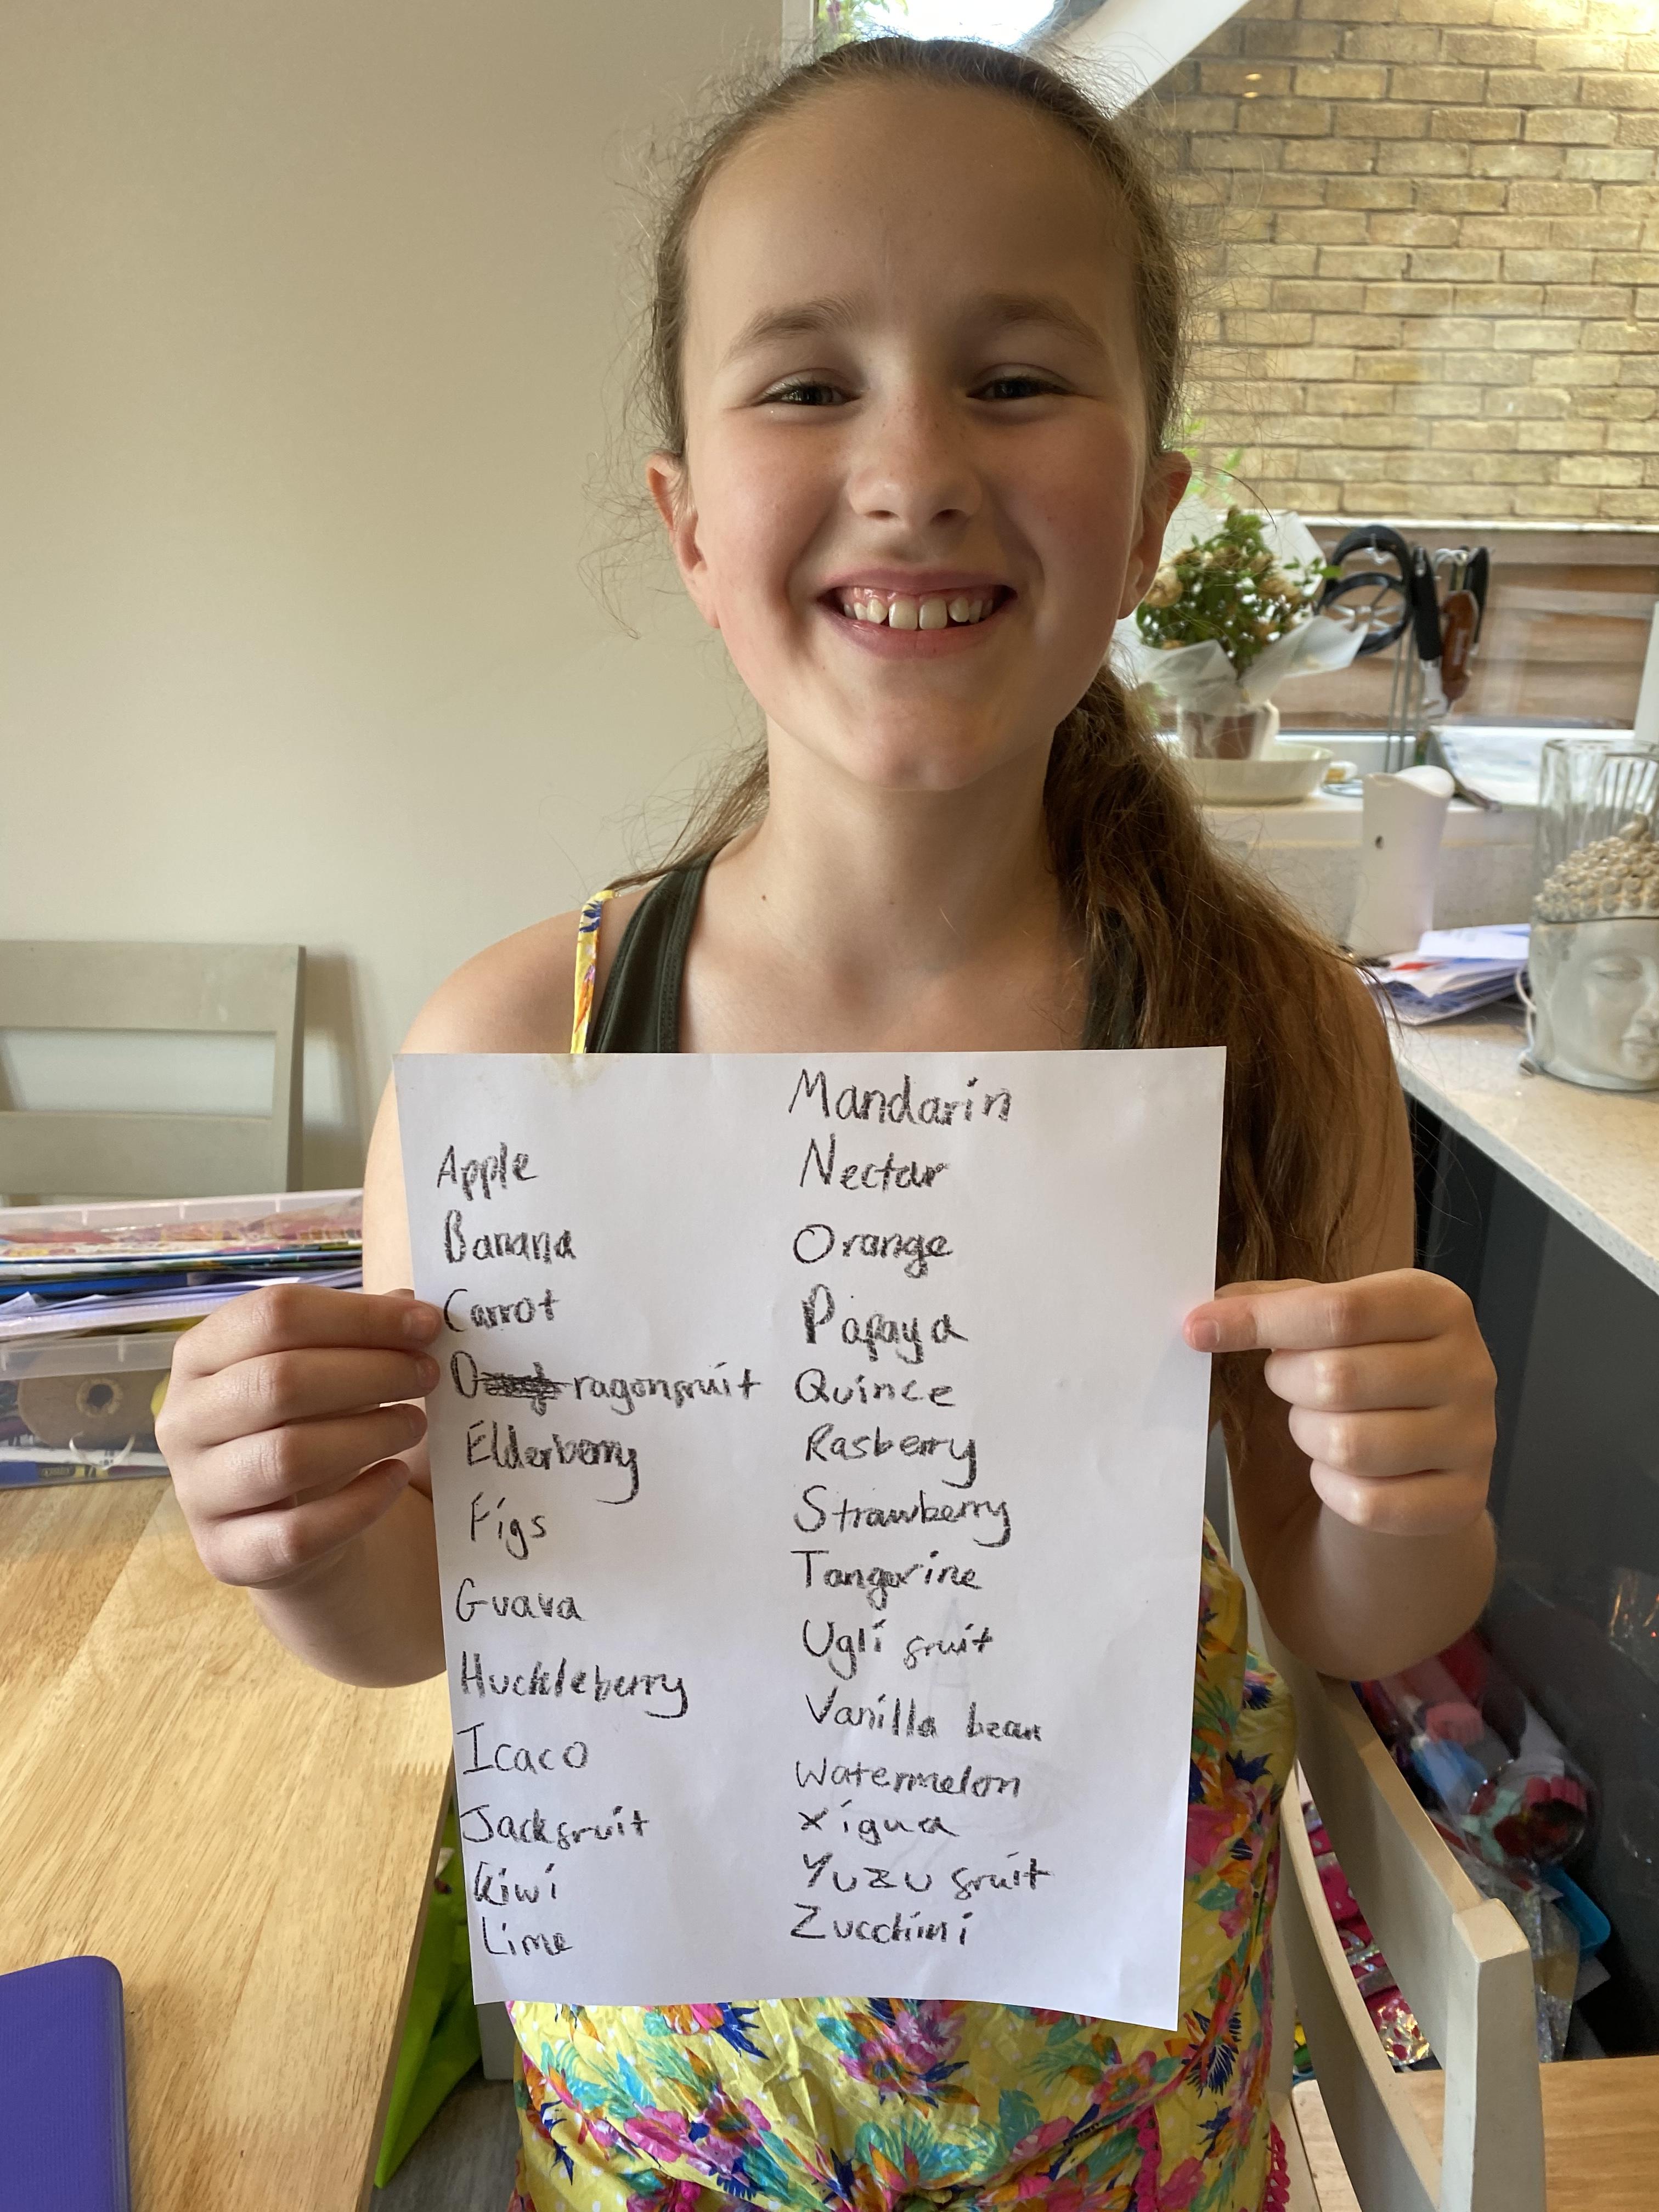 Apple
Banana
Carrot
Dragonfruit
Elderberry
Figs
Guava
Huckleberry
Icaco
Jackfruit
Kiwi
Lime
Mandarin
Nectar
Orange
Papaya
Quince
Rasberry
Strawberry
Tangerine
Ugli fruit
Vanilla bean
Watermelon
Xigua
Yuzu fruit
Zucchini